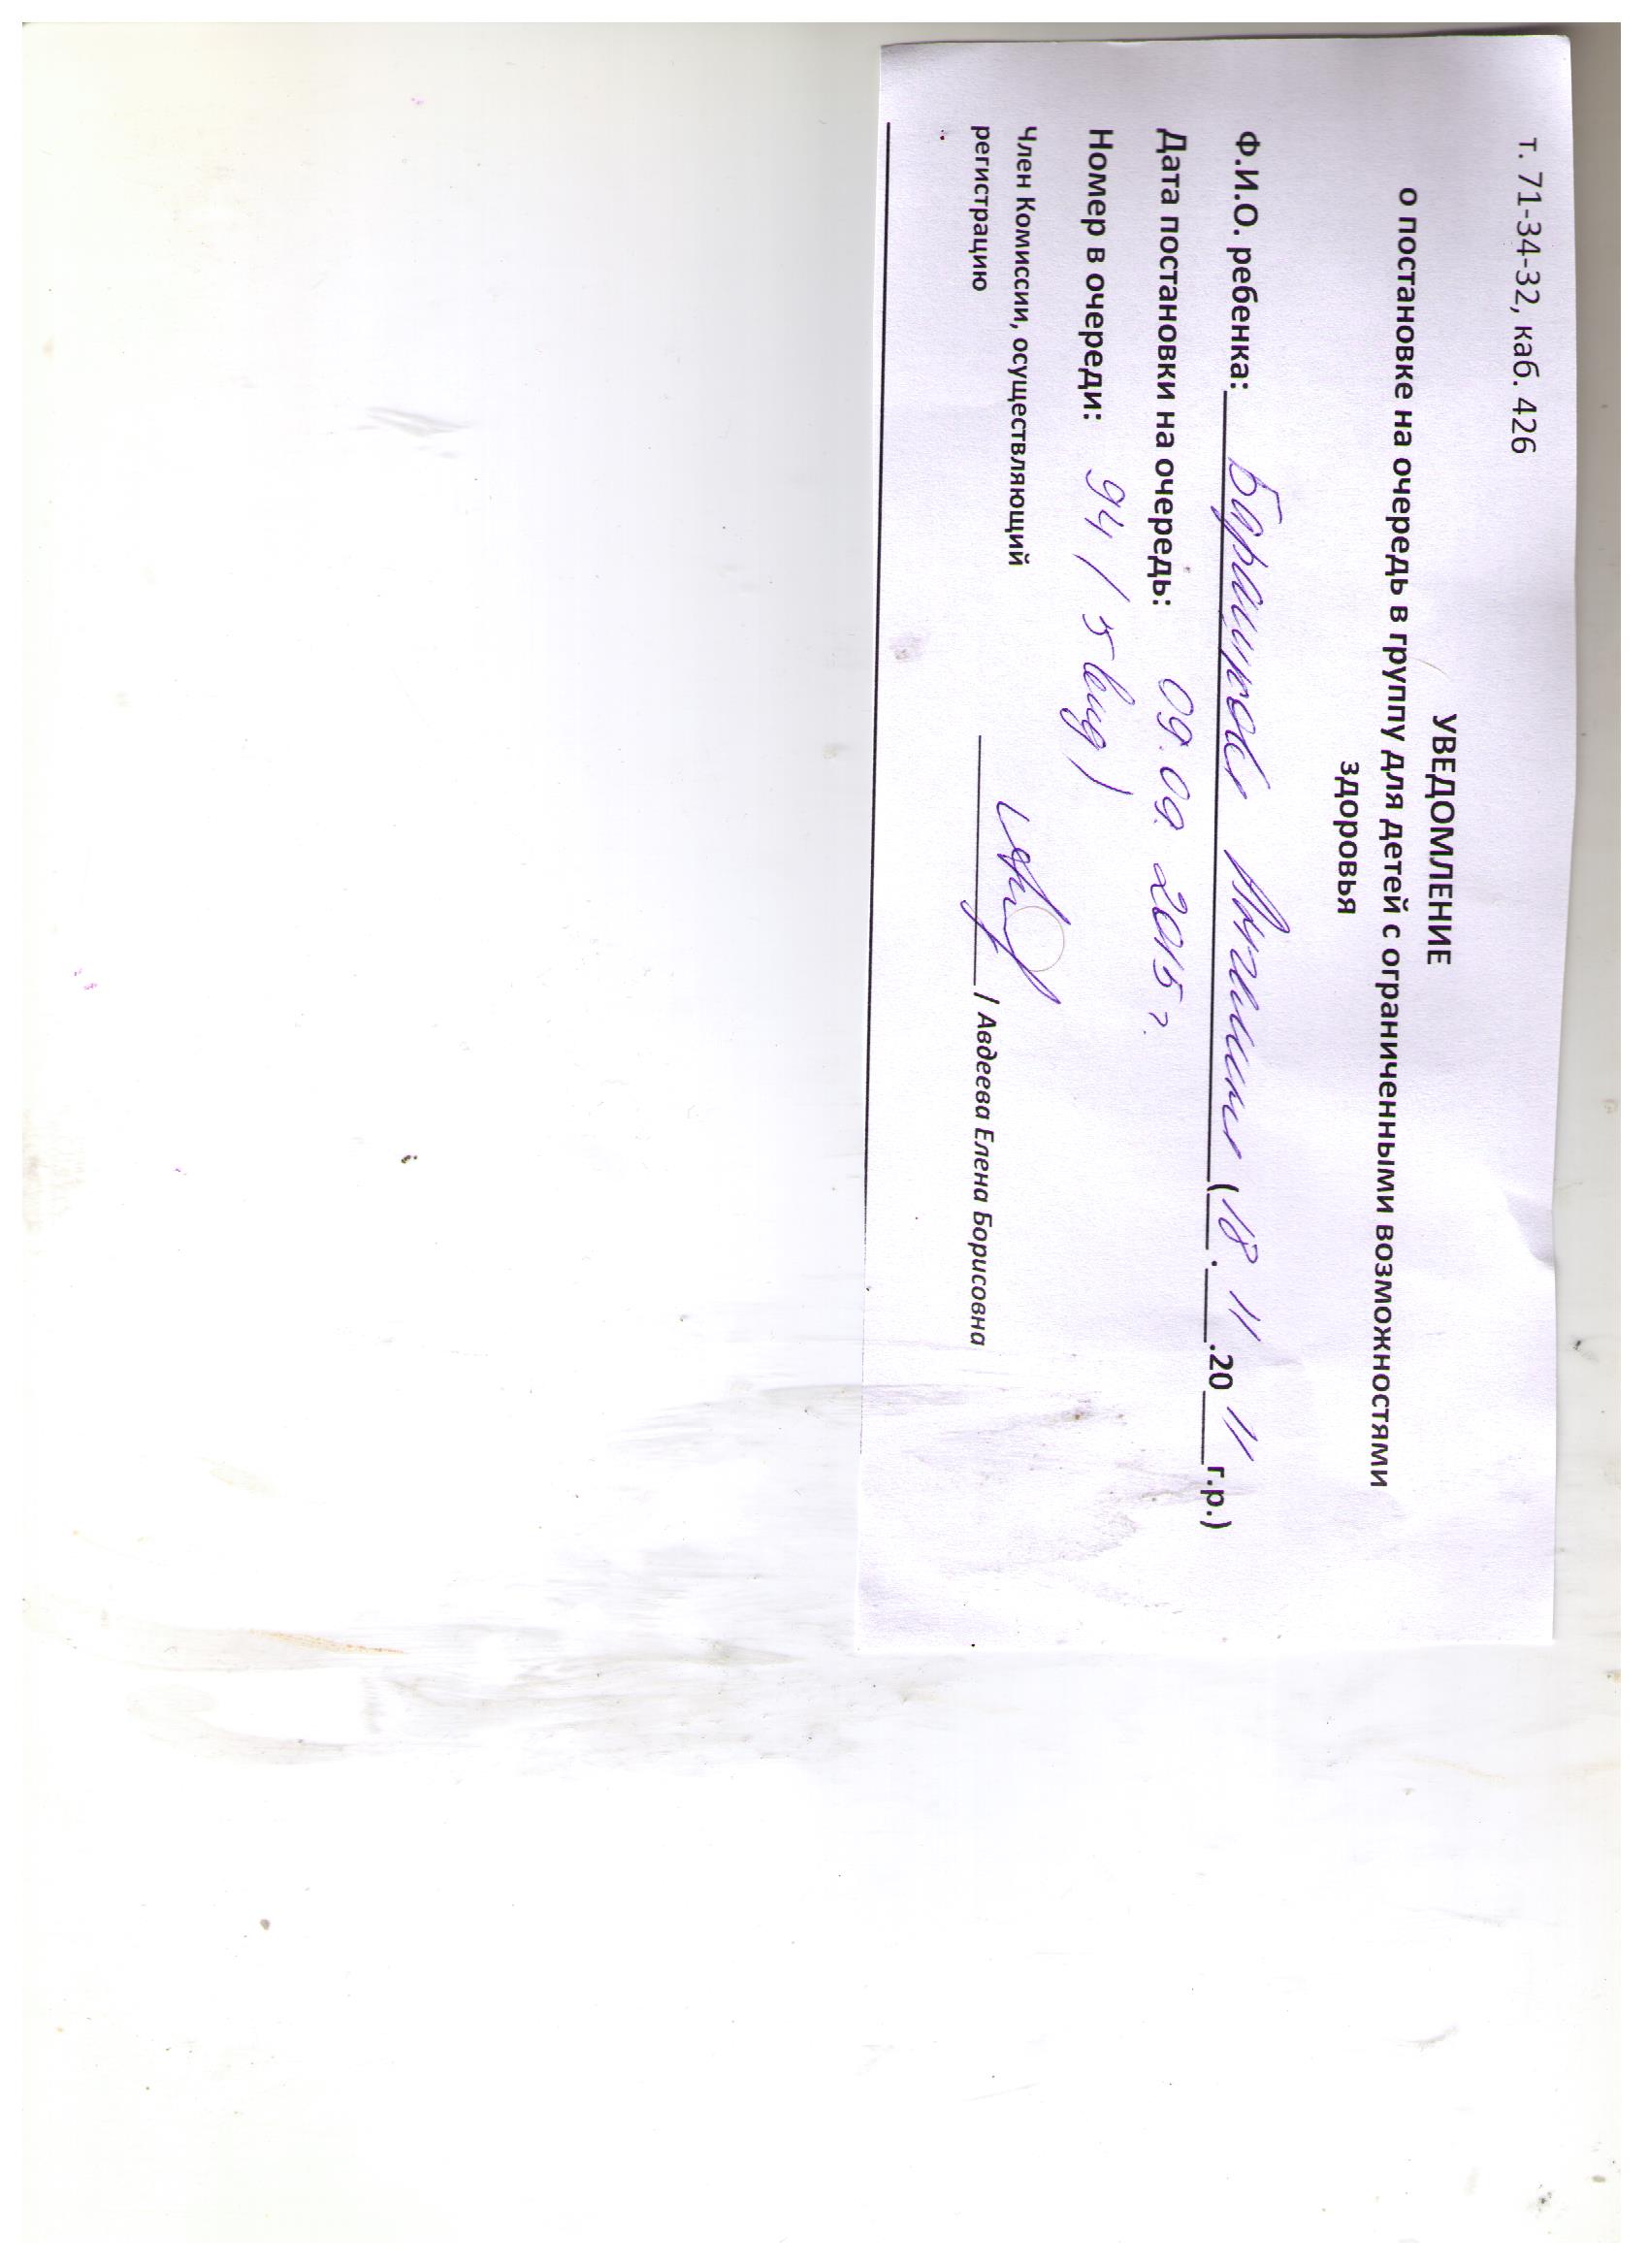 т. 71-34-32, каб. 426
УВЕДОМЛЕНИЕ
о постановке на очередь в группу для детей с ограниченными возможностями
здоровья
Ф.И.О. ребенка: (18.11.2011 г.р.)
Дата постановки на очередь: 09.09.2015 г.
Номер в очереди: 94 / 5 вид)
Член Комиссии, осуществляющий
регистрацию / Авдеева Елена Борисовна